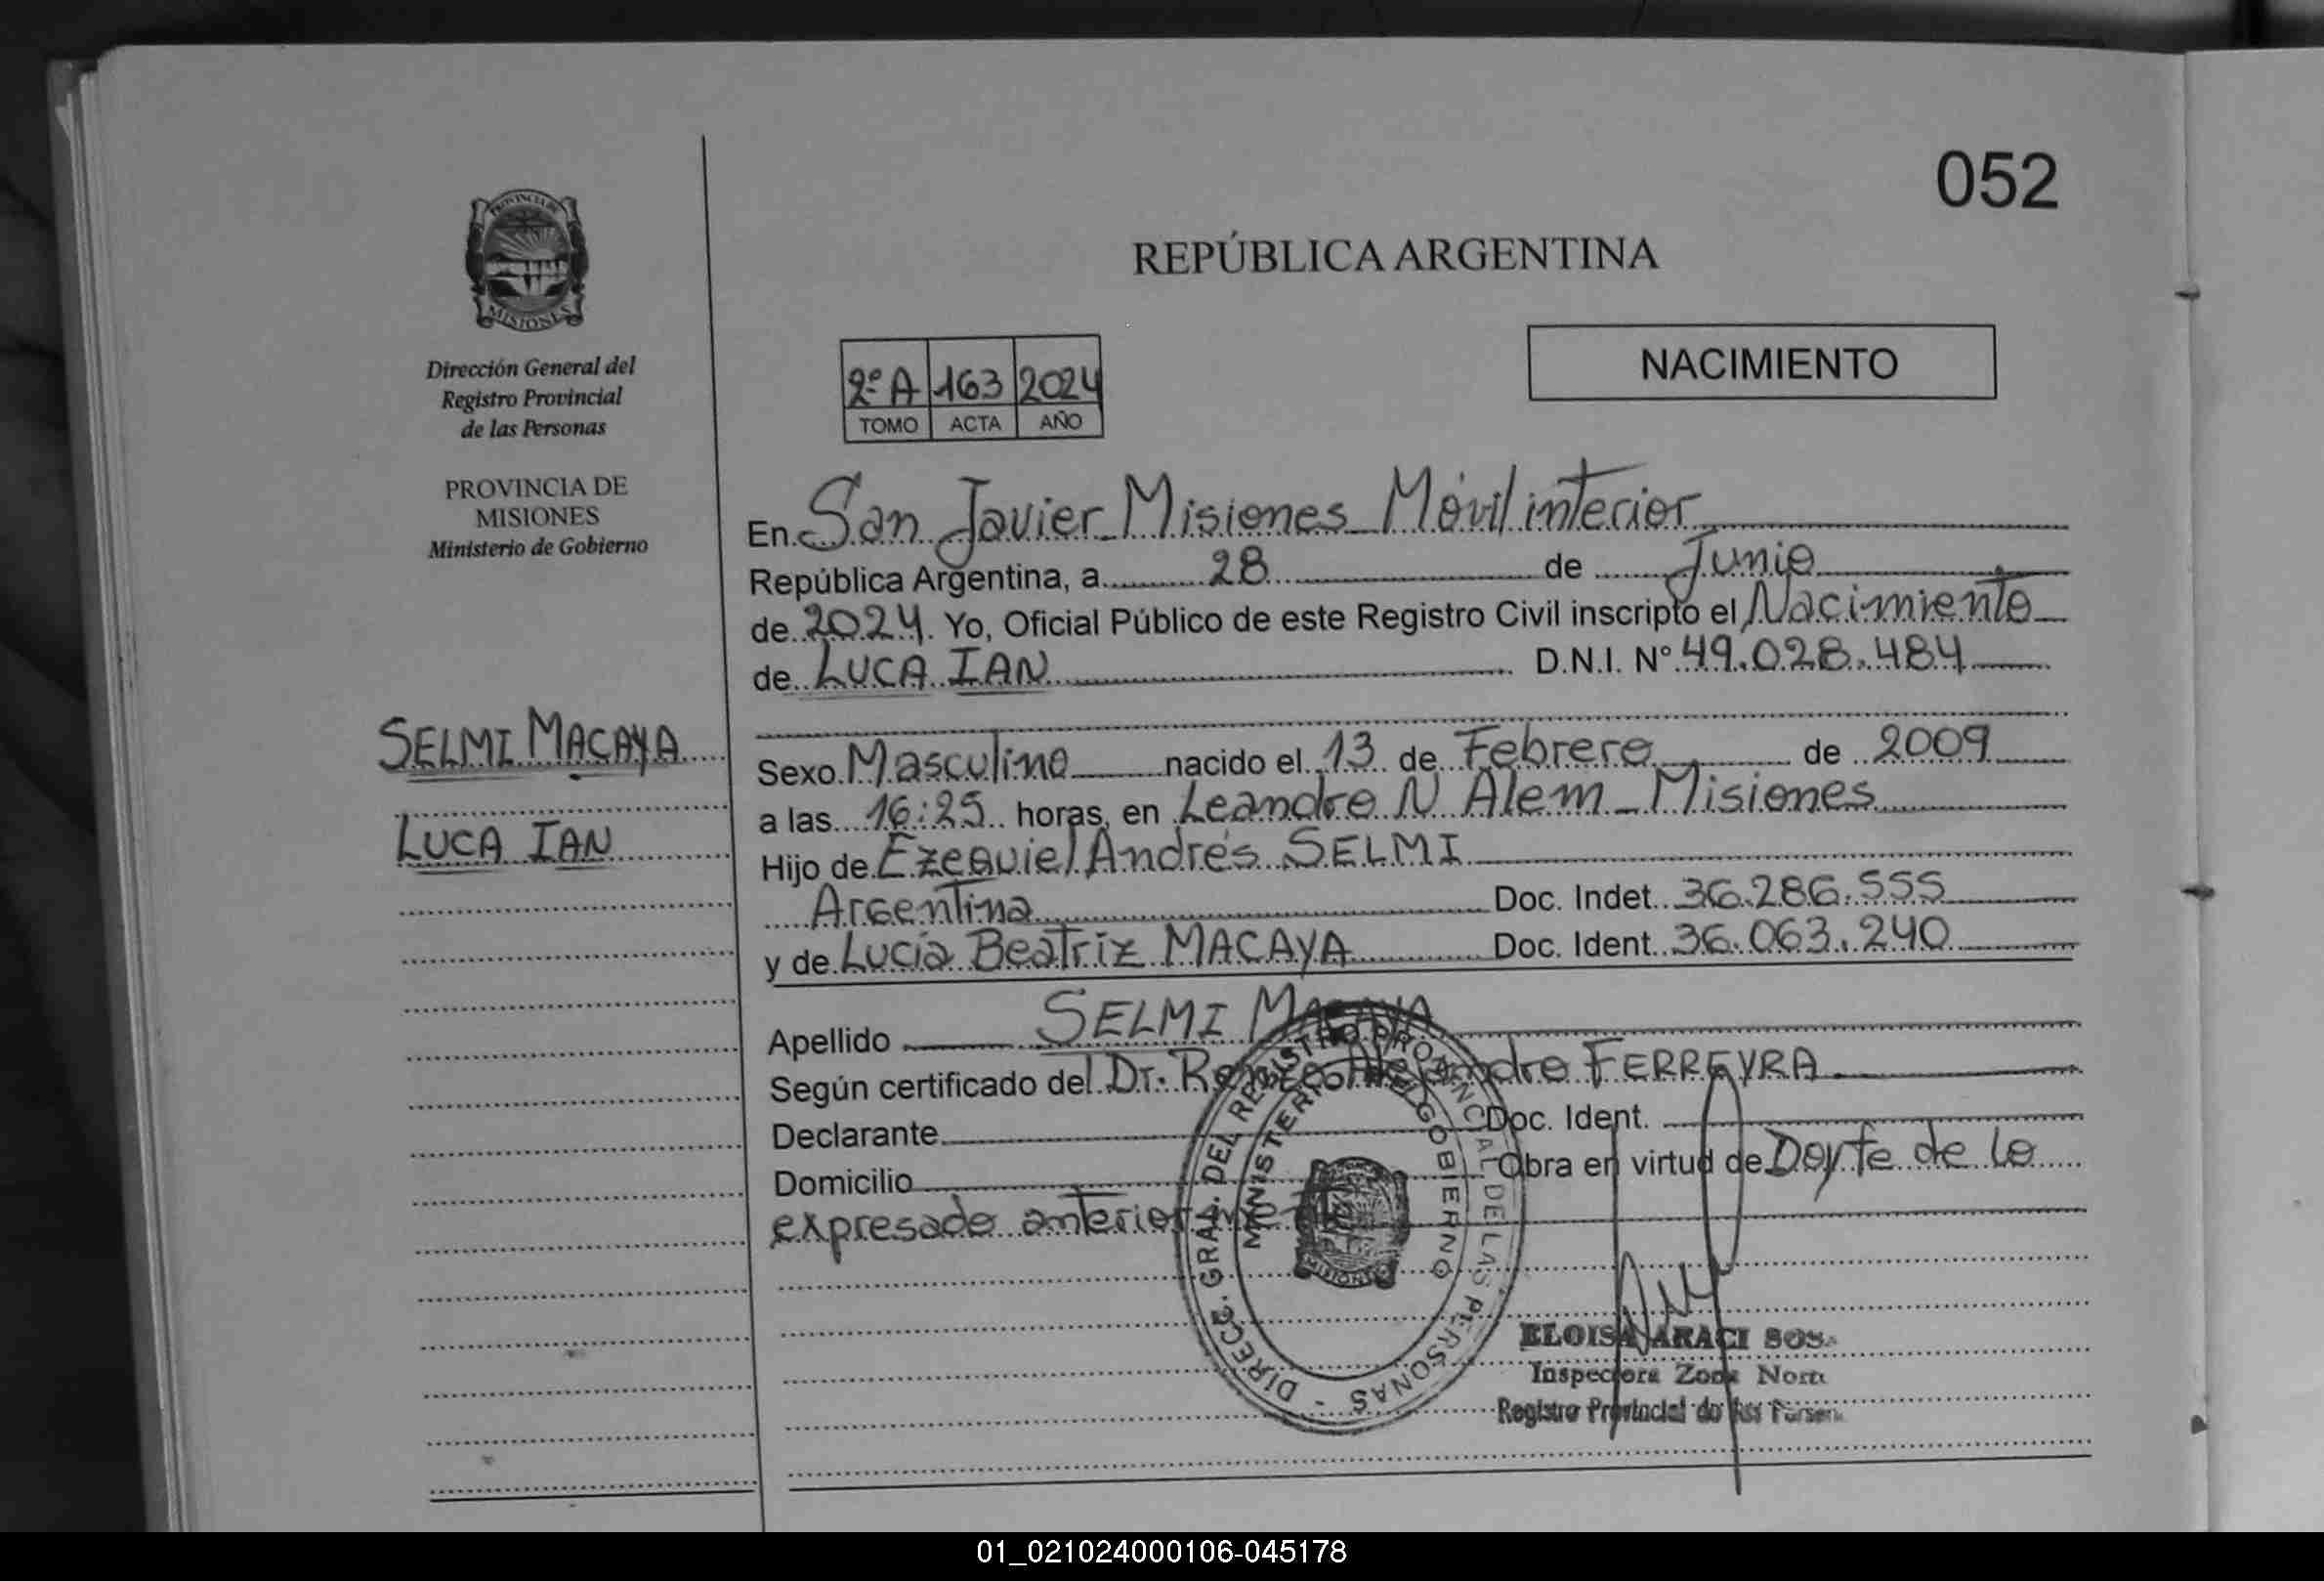 052
PROVINCIA DE
MISIONES
REPÚBLICA ARGENTINA
Dirección General del
Registro Provincial
de las Personas
PROVINCIA DE
MISIONES
Ministerio de Gobierno
NACIMIENTO
2º A 163 2024
TOMO ACTA AÑO
En San Javier Misiones Móvil interior
República Argentina, a 28 de Junio
de 2024. Yo, Oficial Público de este Registro Civil inscripto el Nacimiento
de LUCA IAN D.N.I. Nº 49.028.484
SELMI MACAYA
LUCA IAN
Sexo Masculino nacido el 13 de Febrero de 2009
a las 16:25 horas, en Leandro N Alem - Misiones
Hijo de Ezequiel Andrés SELMI
Argentina Doc. Indet. 36.286.555
y de Lucía Beatriz MACAYA Doc. Ident. 36.063.240
Apellido SELMI MACAYA
Según certificado del Dr. Alejandro FERREYRA
Declarante Doc. Ident.
Domicilio Obra en virtud de Doy fe de lo
expresado
DIRECC. GRAL. DEL REGISTRO PROVINCIAL DE LAS PERSONAS -
MINISTERIO DE GOBIERNO
MISIONES
ELOISA ARACI
Inspectora Zona
Registro Provincial
01_021024000106-045178